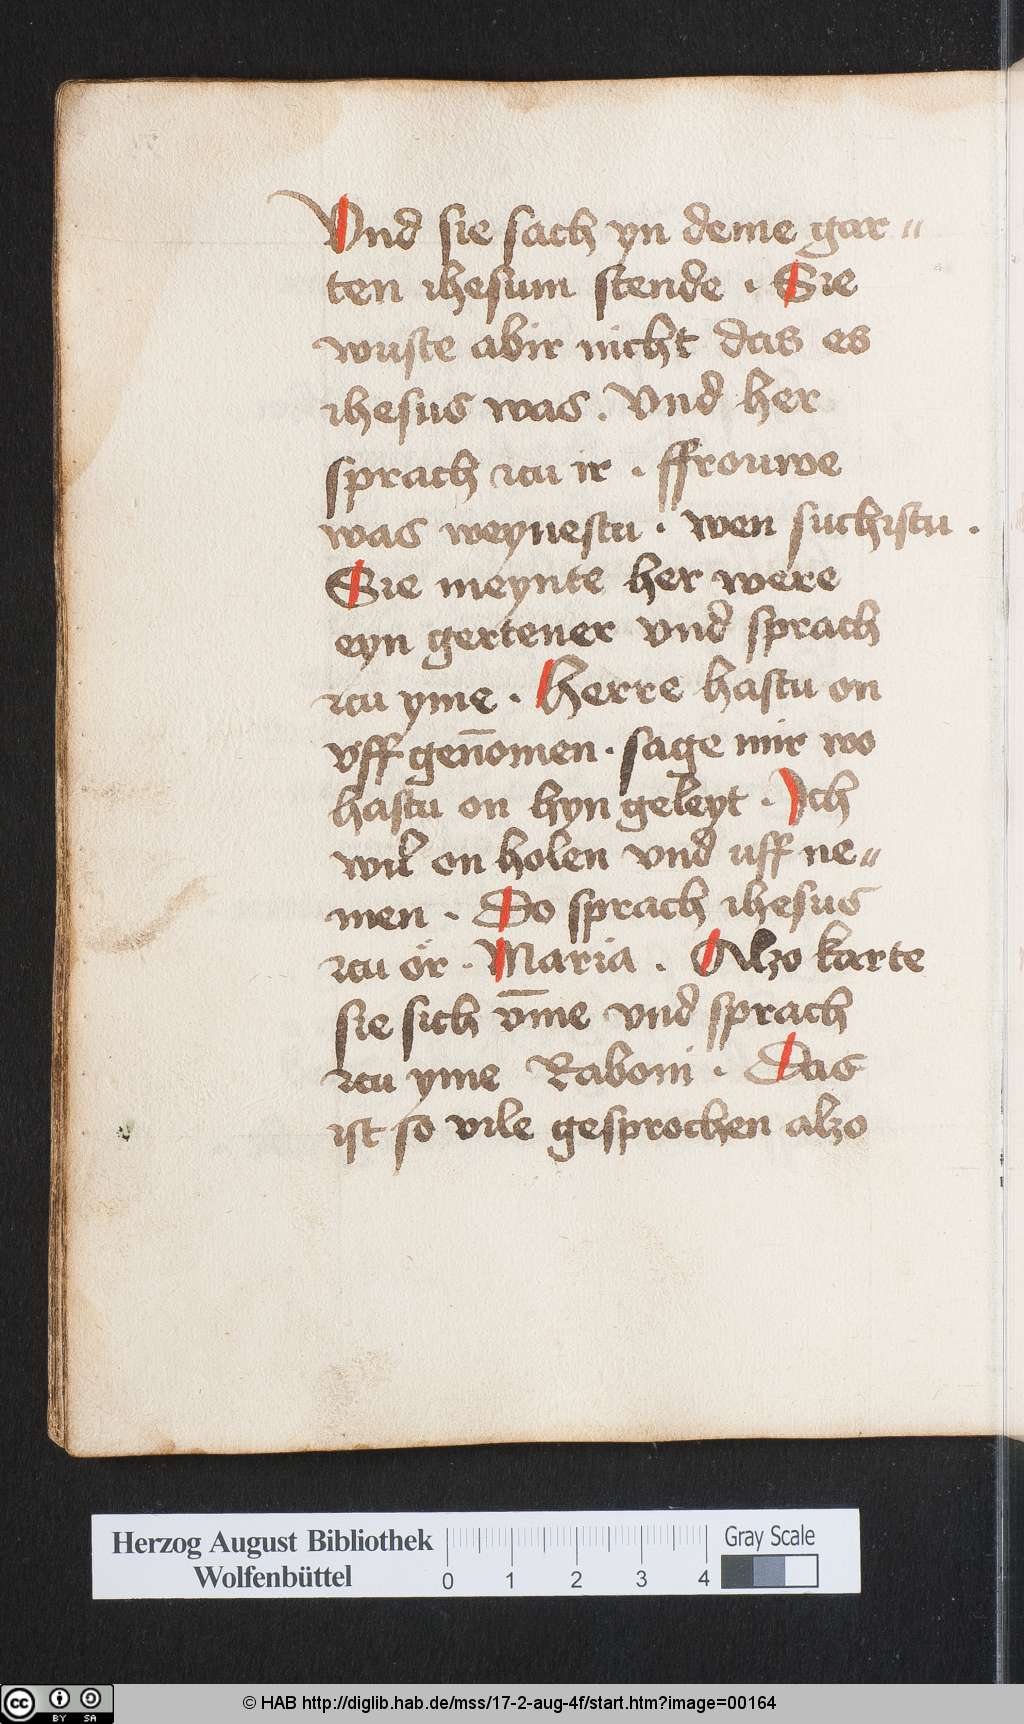 Vnd sie sach yn deme gar⸗
ten ihesum stende . Sie
wuste abir nicht das es
ihesus was . Vnd her
sprach zcu ir . ffrouwe
was weynestu . wen suchistu .
Sie meynte her were
eyn gertener vnd sprach
zcu yme . Herre hastu on
vff gen̄omen . sage mir wo
hastu on hyn geleyt . Ich
wil on holen vnd uff ne⸗
men . Do sprach ihesus
zcu ör . Maria . Alzo karte
sie sich v̄me vnd sprach
zcu yme Raboni . Das
ist so vile gesprochen alzo
Herzog August Bibliothek
Wolfenbüttel
0 1 2 3 4
Gray Scale
cc BY SA
© HAB http://diglib.hab.de/mss/17-2-aug-4f/start.htm?image=00164